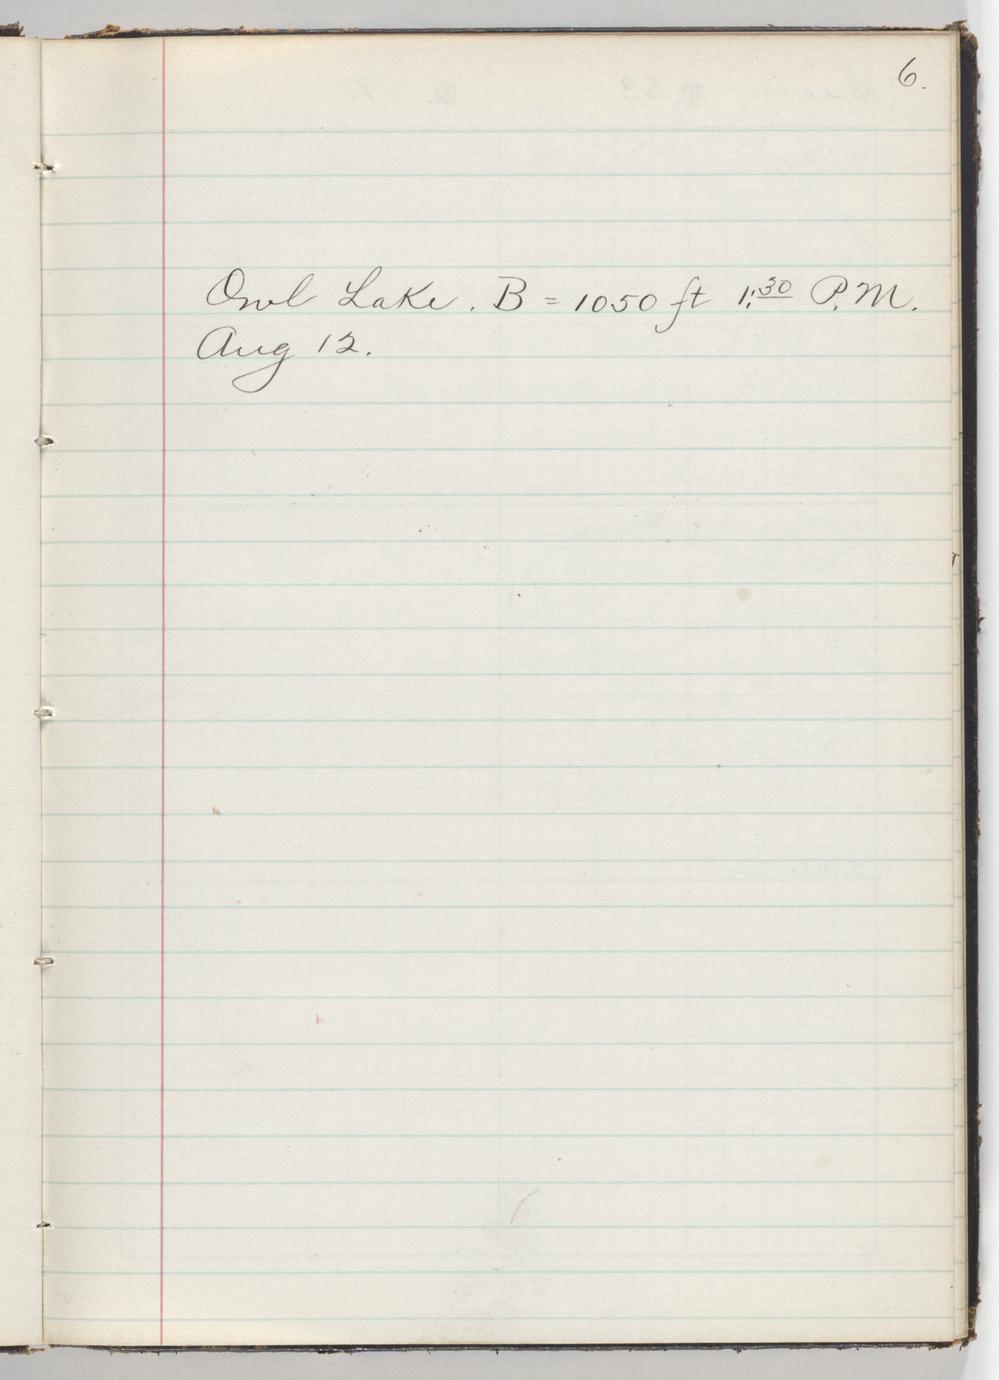 6.
Owl Lake. B = 1050 ft 1:30 P.M.
Aug 12.